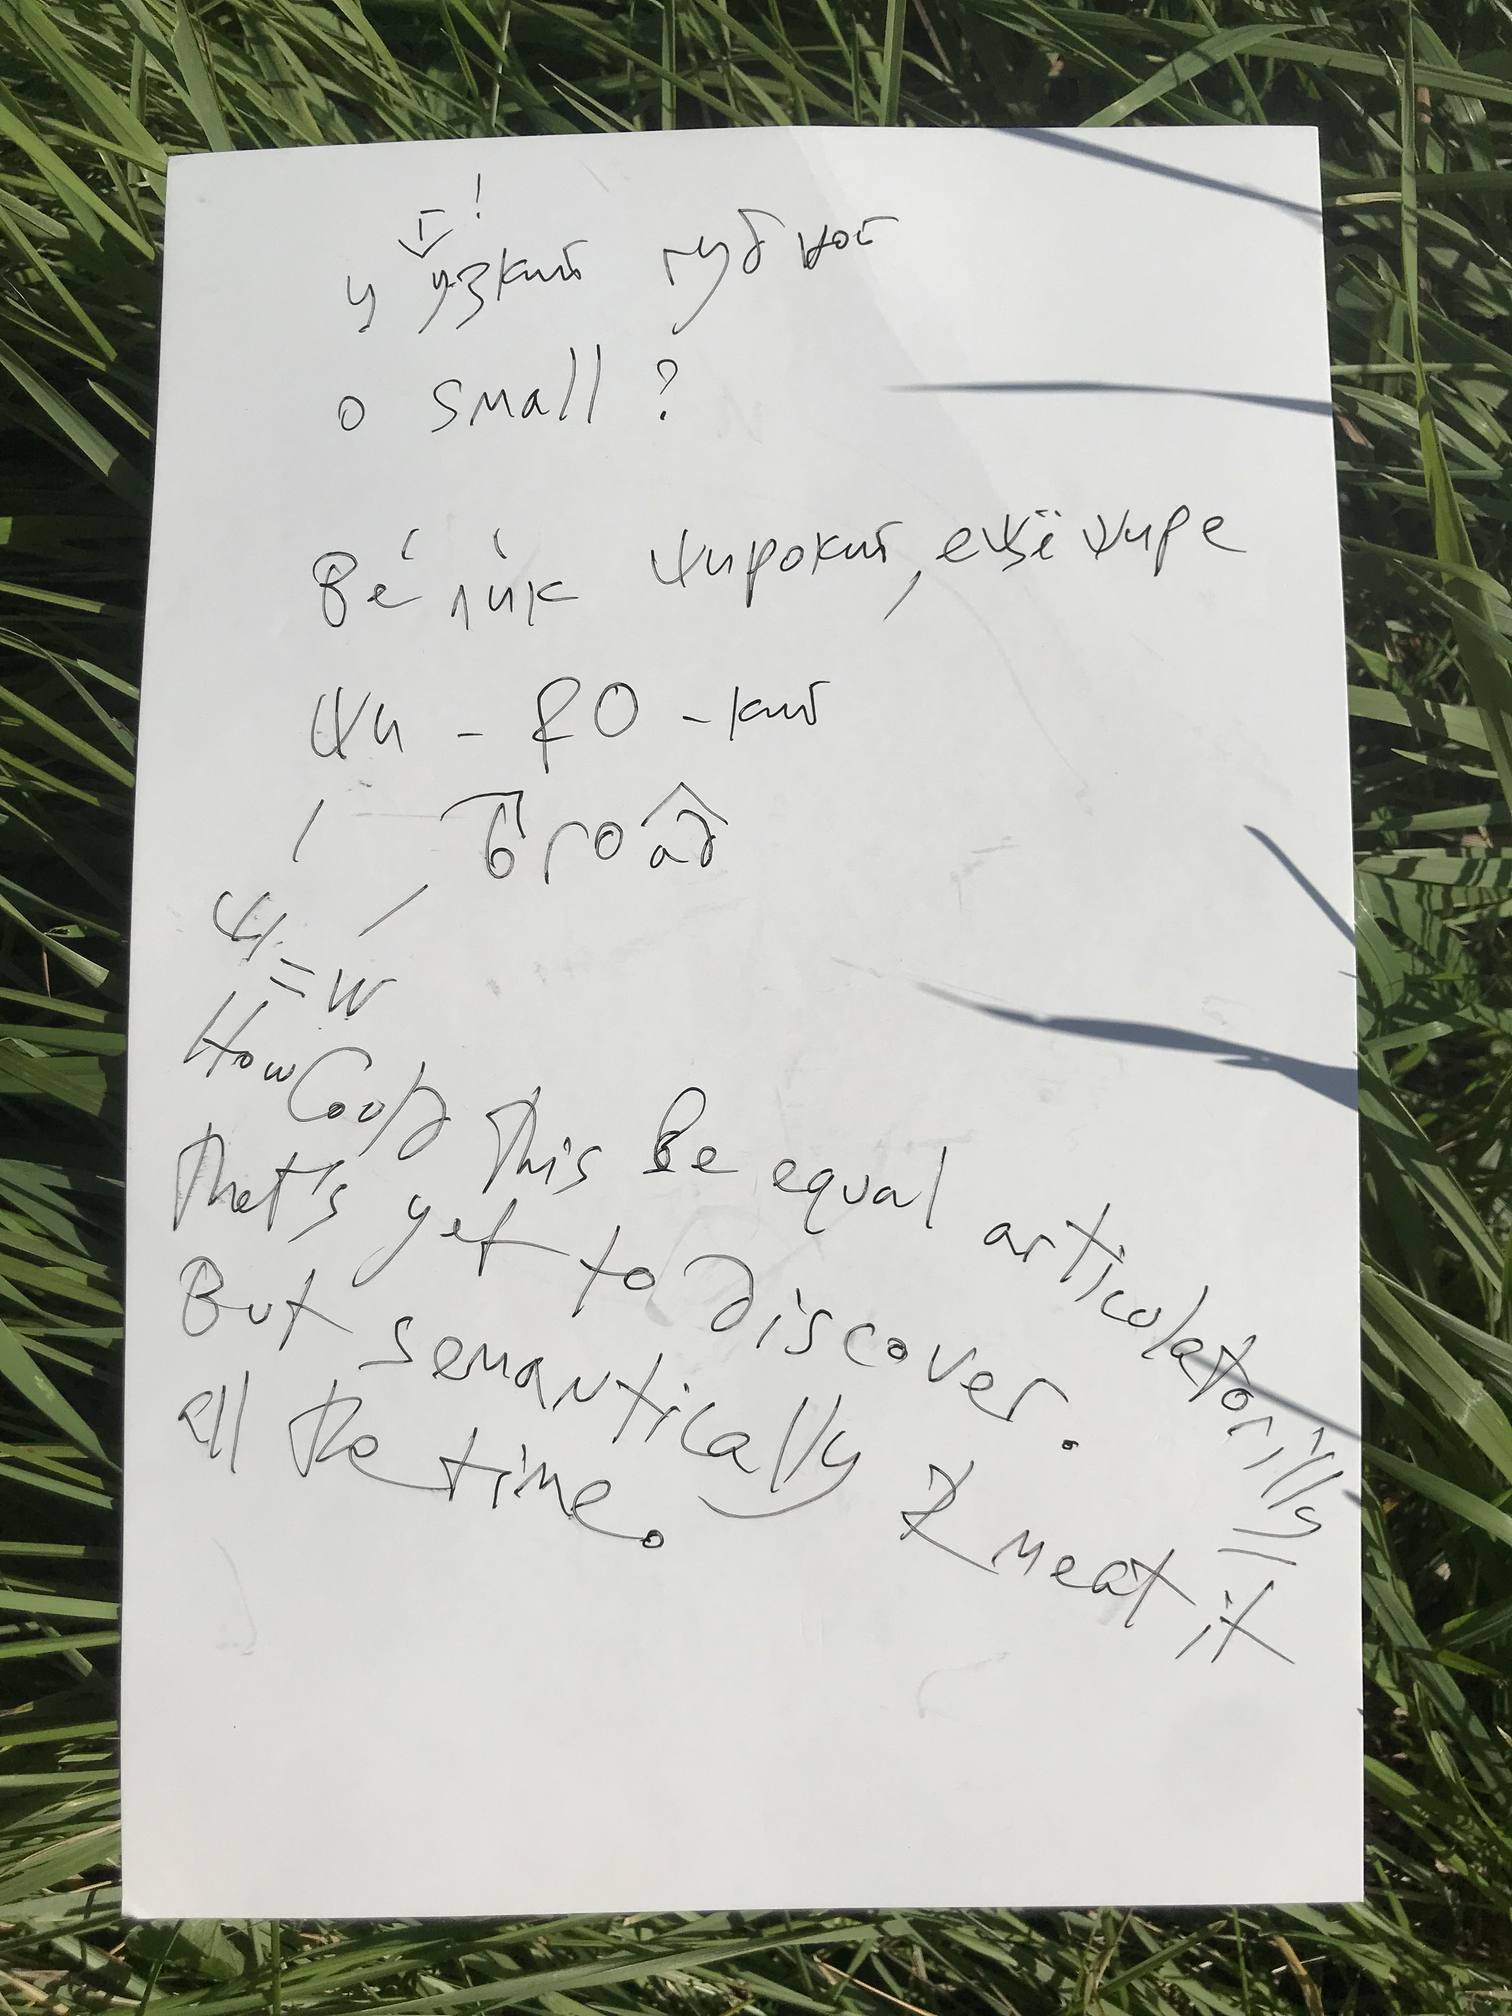 !
у узкий губной
o small ?
Ве́ ли́к широкий, ещё шире
Ши - RO - кий
broad
Ш = W
How Could This Be equal articulatorilly
That's yet to discover.
But semantically I meat it
all the time.